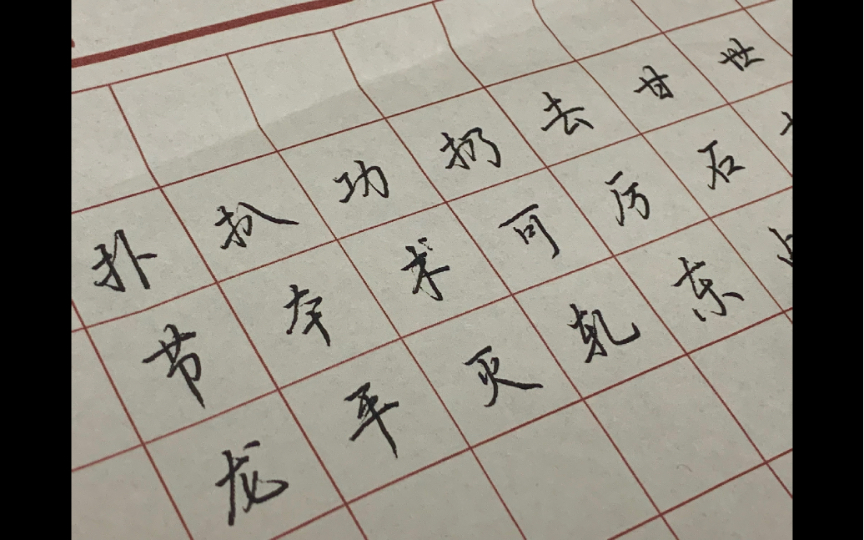 扑扒功扔去甘世
节本术可厉石
龙平灭轧东